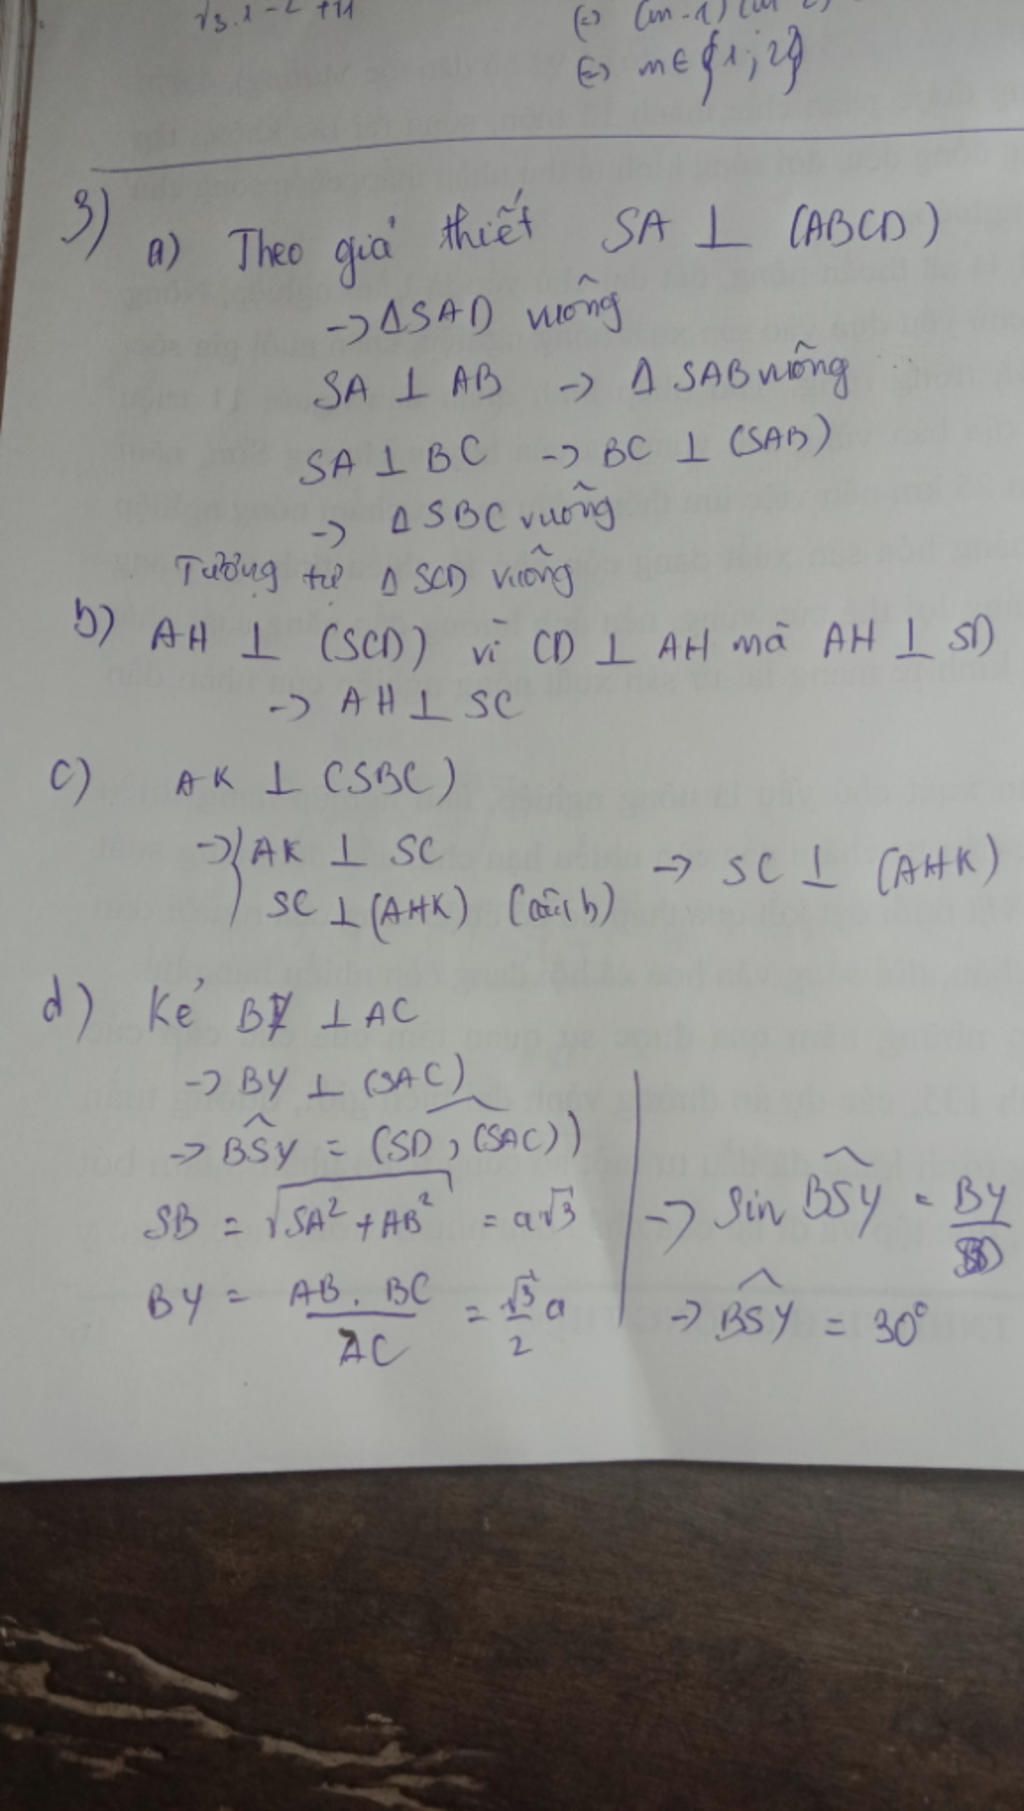 (=) m ∈ {1; 2}
3)
a) Theo giả thiết SA ⊥ (ABCD)
-> ΔSAD vuông
SA ⊥ AB -> Δ SAB vuông
SA ⊥ BC -> BC ⊥ (SAB)
-> Δ SBC vuông
Tương tự Δ SCD vuông
b) AH ⊥ (SCD) vì CD ⊥ AH mà AH ⊥ SD
-> AH ⊥ SC
c) AK ⊥ (SBC)
-> { AK ⊥ SC
SC ⊥ (AHK) (câu b) -> SC ⊥ (AHK)
d) Kẻ BY ⊥ AC
-> BY ⊥ (SAC)
-> BSY = (SD, (SAC))
SB = √SA² + AB² = a√3
BY = AB . BC / AC = √3/2 a
-> sin BSY = BY
-> BSY = 30°